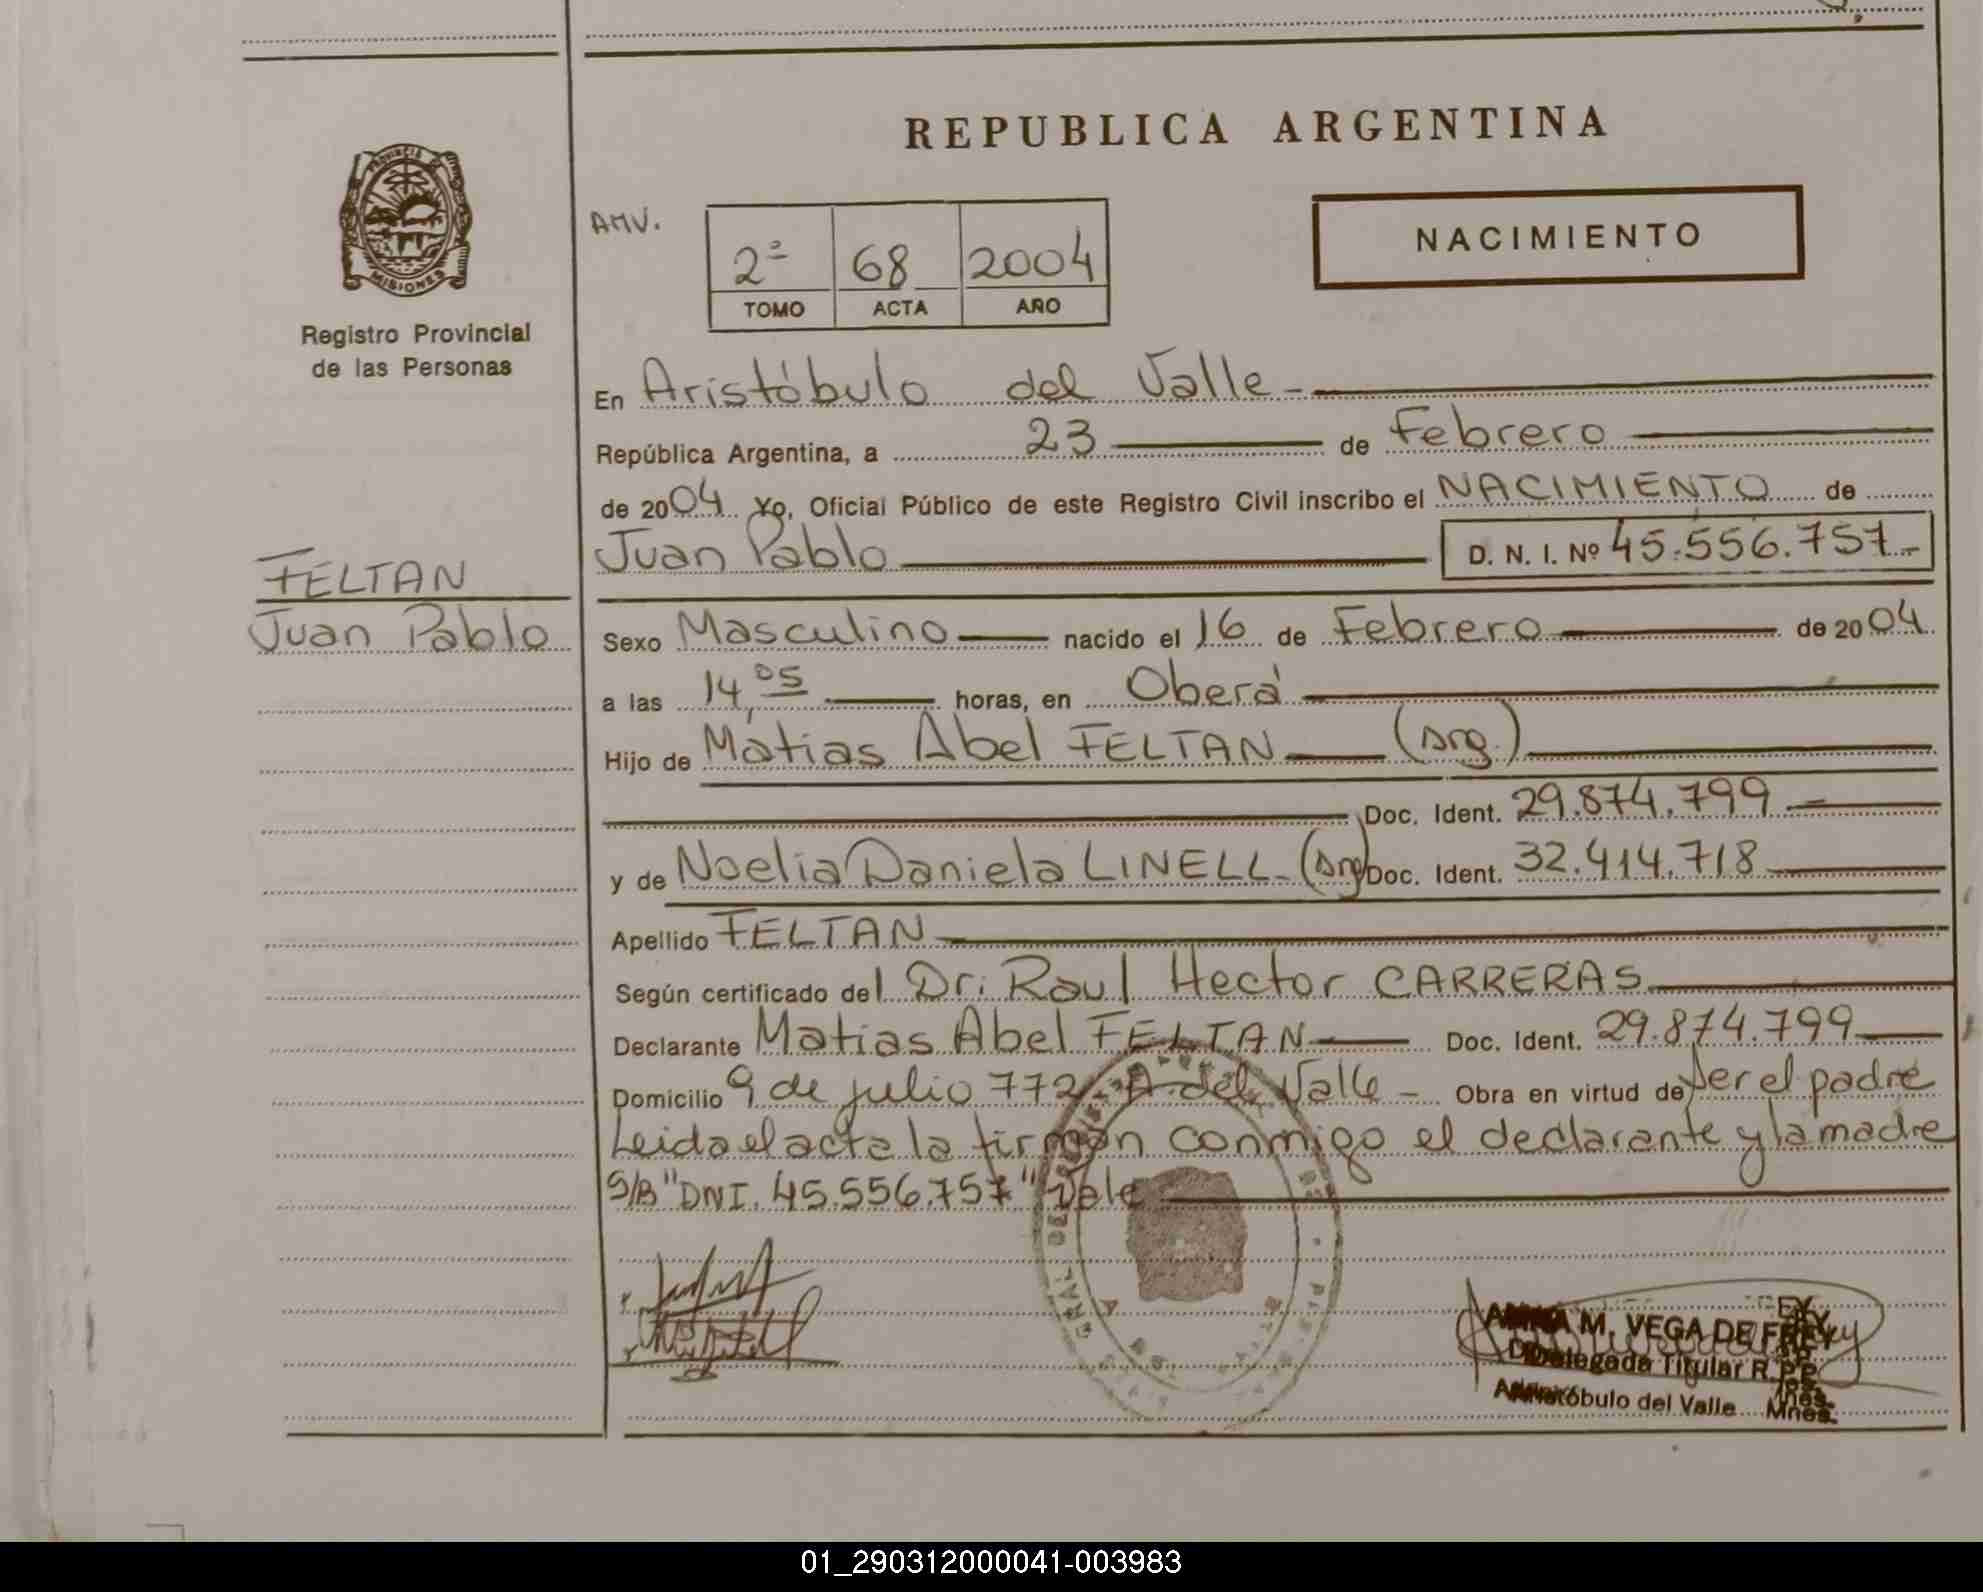 REPUBLICA ARGENTINA
PROVINCIA DE
MISIONES
Registro Provincial
de las Personas
AMV.
2º 68 2004
TOMO ACTA AÑO
NACIMIENTO
En Aristóbulo del Valle -
República Argentina, a 23 de Febrero
de 2004 Yo, Oficial Público de este Registro Civil inscribo el NACIMIENTO de
Juan Pablo D. N. I. Nº 45.556.757.-
FELTAN
Juan Pablo
Sexo Masculino nacido el 16 de Febrero de 2004
a las 14,05 horas, en Oberá
Hijo de Matias Abel FELTAN (Arg.)
Doc. Ident. 29.874.799
y de Noelia Daniela LINELL - (Arg) Doc. Ident. 32.414.718
Apellido FELTAN
Según certificado del Dr. Raul Hector CARRERAS
Declarante Matias Abel FELTAN Doc. Ident. 29.874.799
Domicilio 9 de julio 772 - A. del Valle - Obra en virtud de ser el padre
Leida el acta la firman conmigo el declarante y la madre
S/B "DNI. 45.556.757" Vale
ANNA M. VEGA DE FREY
Delegada Titular R.P.P.
Aristóbulo del Valle Mnes.
01_290312000041-003983